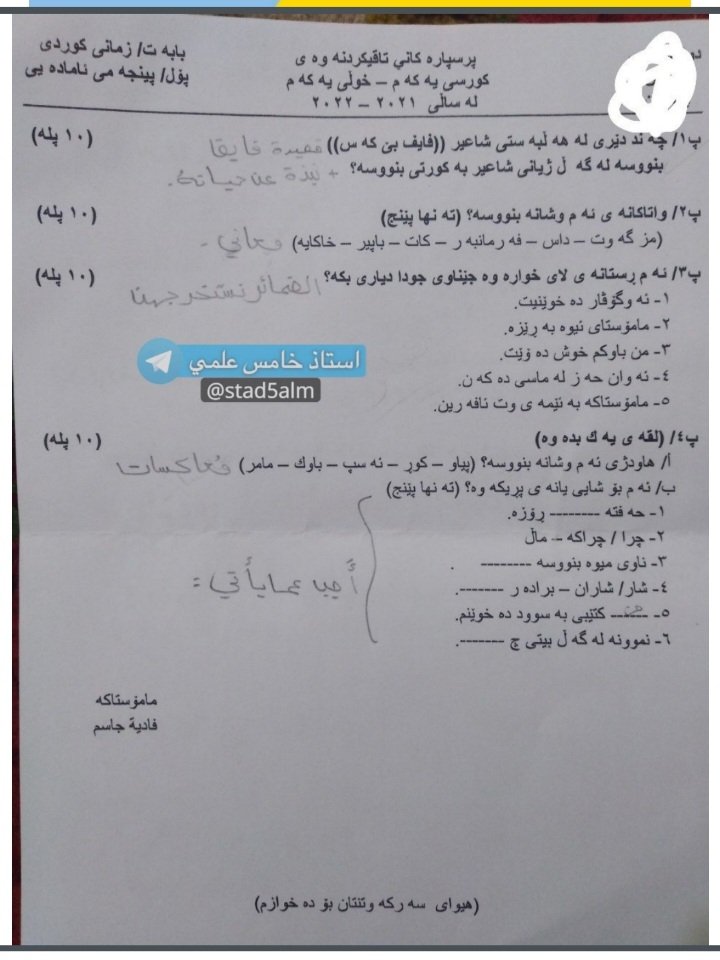 پرسیاره كاني تاقیكردنه وه ی
كورسی یه كه م – خولی یه كه م
له ساڵی ٢٠٢١ – ٢٠٢٢
بابه ت/ زمانی كوردی
پۆل/ پینجه می ئاماده یی
پ١/ چه ند دێری له هه ڵبه ستی شاعیر ((فایف بێ كه س)) قصيدة فايقا (١٠ پله)
بنووسه له گه ڵ ژیانی شاعیر به كورتی بنووسه؟ + نبذة عن حياته.
پ٢/ واتاكانه ی ئه م وشانه بنووسه؟ (ته نها پێنج) (١٠ پله)
(مز گه وت – داس – فه رمانبه ر – كات – باپیر – خاكایه) معاني -
پ٣/ ئه م ڕستانه ی لای خواره وه جێناوی جودا دیاری بكه؟ الضمائر نستخرجهن (١٠ پله)
١- ئه وگۆڤار ده خوێنیت.
٢- مامۆستای ئیوه به ڕێزه.
استاذ خامس علمي
٣- من باوكم خوش ده وێت.
@stad5alm
٤- ئه وان حه ز له ماسی ده كه ن.
٥- مامۆستاكه به ئێمه ی وت ئافه رین.
پ٤/ (لقه ی یه ك بده وه) (١٠ پله)
أ/ هاودژی ئه م وشانه بنووسه؟ (پیاو – كوڕ – ئه سپ – باوك – مامر) معاكسات
ب/ ئه م بۆ شایی یانه ی پڕیكه وه؟ (ته نها پێنج)
١- حه فته -------- ڕۆژه.
٢- چرا / چراكه – ماڵ
٣- ناوی میوه بنووسه -------- .
٤- شار/ شاران – براده ر -------.
أجب عمايأتي :
٥- ------ كتێبی به سوود ده خوێنم.
٦- نموونه له گه ڵ بیتی ج -------.
مامۆستاكه
فادية جاسم
(هیوای سه ركه وتنتان بۆ ده خوازم)